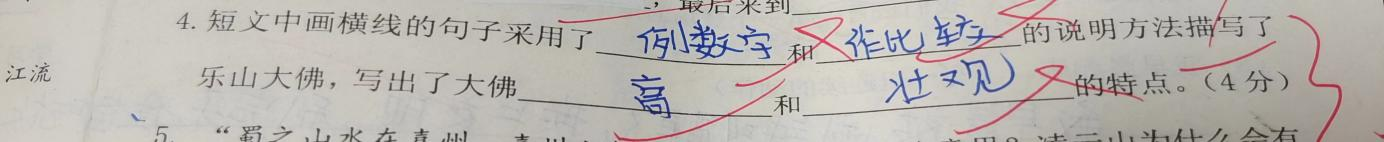 ，最后来到
4. 短文中画横线的句子采用了 例数字 和 作比较 的说明方法描写了
江流
乐山大佛，写出了大佛 高 和 壮观 的特点。（4分）
5. “蜀之山水在嘉州，嘉州
凌云山为什么会有